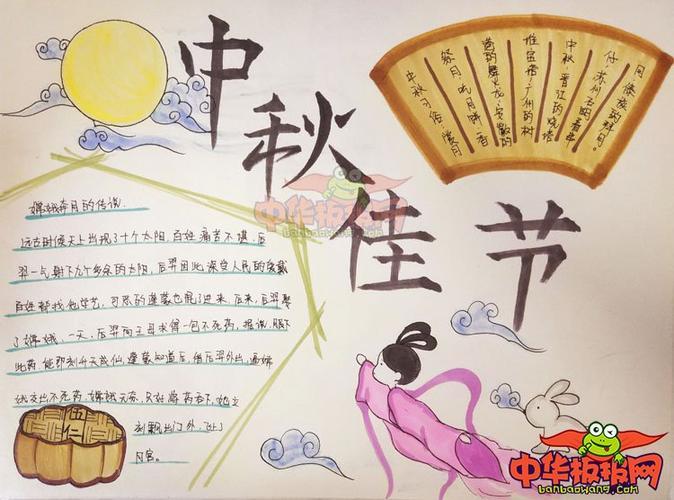 中秋佳节
嫦娥奔月的传说
远古时候天上出现了十个太阳,百姓痛苦不堪,后
羿一气射下九个多余的太阳,后羿因此深受人民的爱戴
百姓都找他学艺,可恶的蓬蒙也混了进来.后来,后羿娶
了嫦娥,一天,后羿向王母求得一包不死药,据说,服下
此药,能即刻升天成仙,蓬蒙知道后,借后羿外出,逼嫦
娥交出不死药,嫦娥无奈,只好将药吞下,她立
刻飘出门外,飞上
月宫。
中秋习俗:赏月
祭月、吃月饼、香
港的舞火龙、安徽的
堆宝塔、广州的树
中秋、晋江的烧塔
仔、苏州石湖看串
月、傣族的拜月。
五仁
中华板报网
banbaowang.com
中华板报网
banbaowang.com